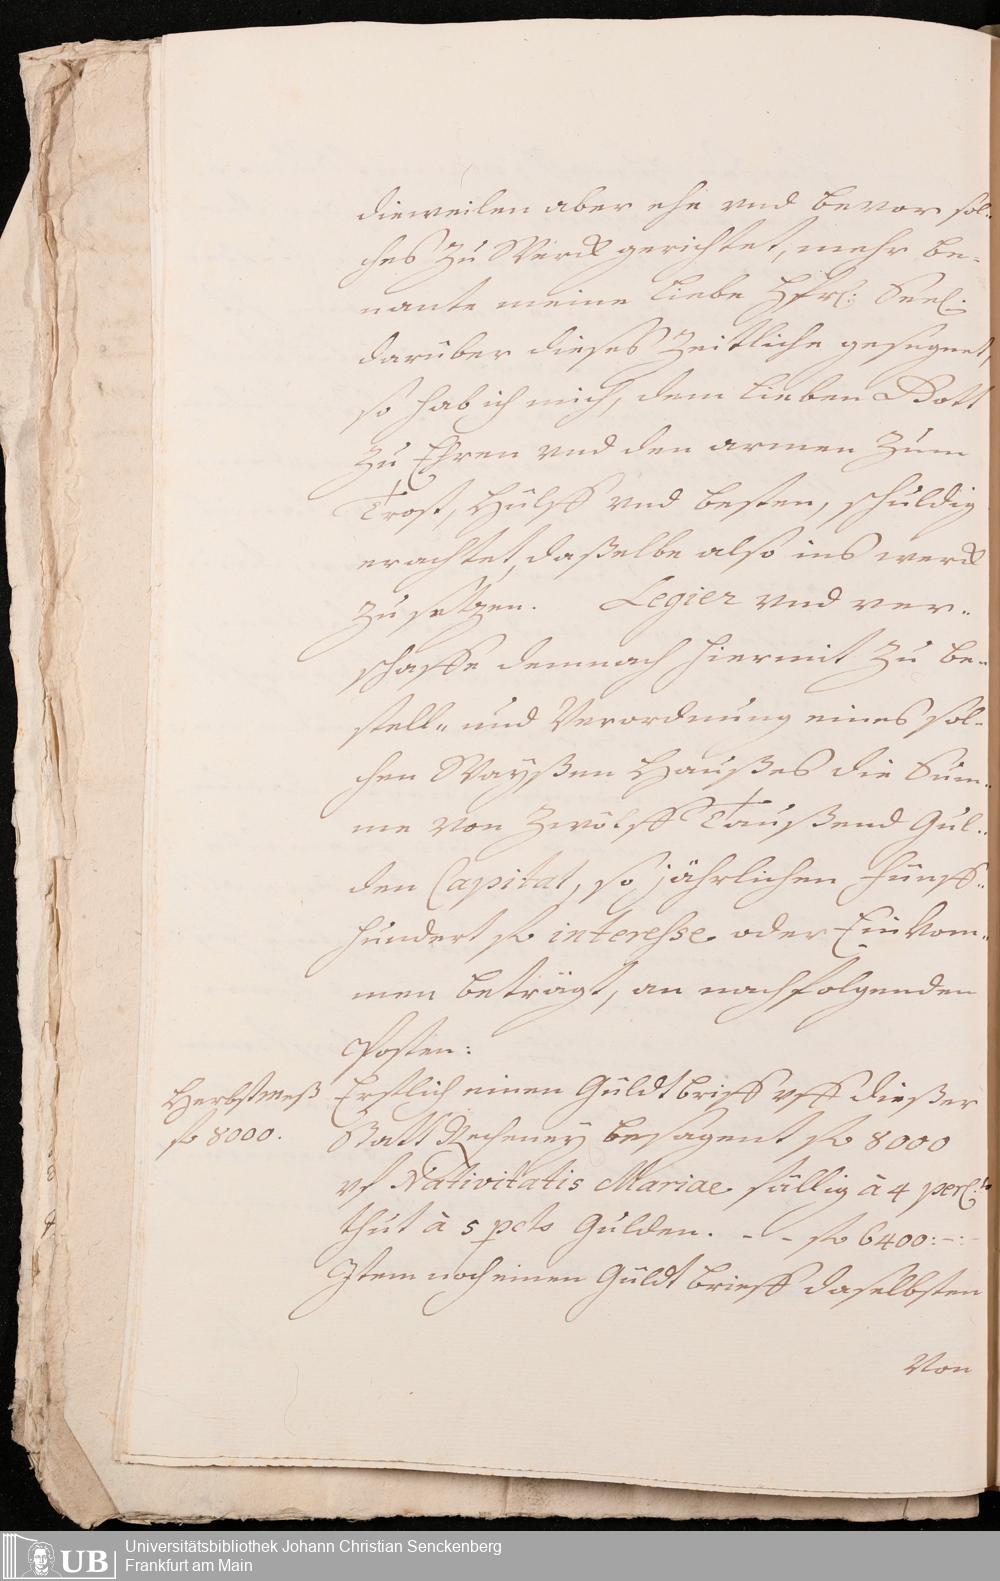 dieweilen aber ehe vnd bevor sol-
ches zu Werck gerichtet, mehr be-
nante meine liebe Seel:
darüber dieses Zeitliche gesegnet,
so hab ich mich, dem lieben Gott
zu Ehren vnd den armen zum
Trost, Hülff vnd besten, schuldig
erachtet, daßelbe also ins werck
zu setzen. Legier vnd ver-
schaffe demnach hiermit zu be-
stell- und Verordnung eines sol-
chen Wayßen Haußes die Sum-
me von Zwölff Taußend Gul-
den Capital, so jährlichen fünff-
hundert fl interesse oder Einkom-
men beträgt, an nachfolgenden
Posten:
Herbstmeß
fl 8000.
Erstlich einen Güldtbrieff vff dießer
Statt Recheney besagent fl 8000
vf Nativitatis Mariae fällig à 4 perC:to
thut à 5 pcto Gulden. - - fl 6400:-:-
Item noch einen Güldtbrieff daselbsten
Von
Universitätsbibliothek Johann Christian Senckenberg
Frankfurt am Main
UB